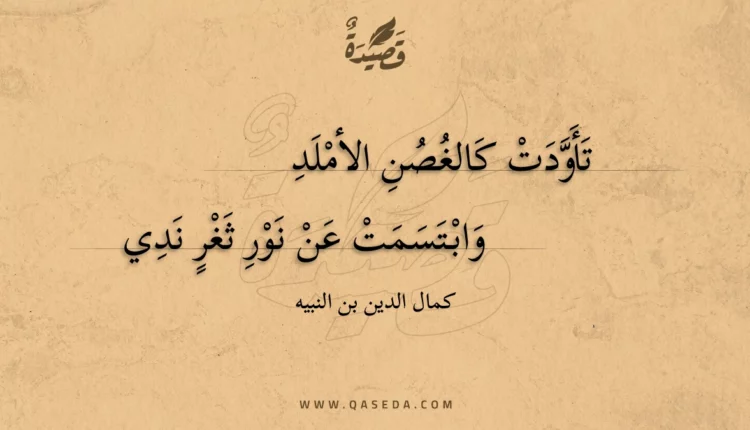 قَصِيْدَةٌ
تَأَوَّدَتْ كَالغُصُنِ الأمْلَدِ
وَابْتَسَمَتْ عَنْ نَوْرِ ثَغْرٍ نَدِي
كمال الدين بن النبيه
WWW.QASEDA.COM